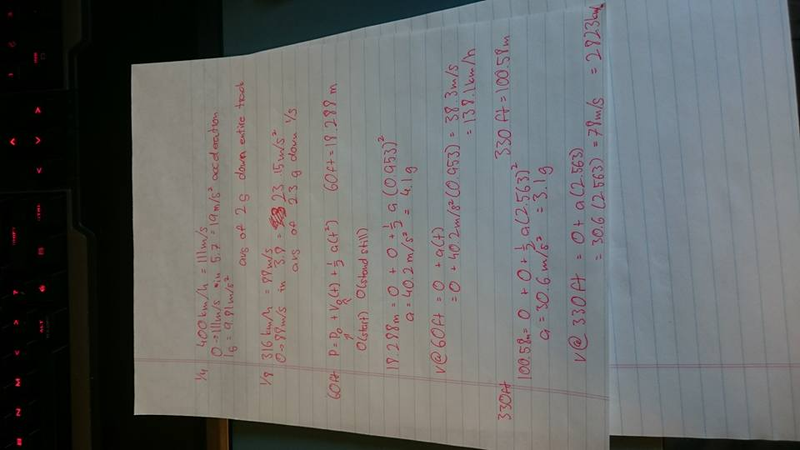 1/4 400 km/h = 111 m/s
0→111 m/s in 5.7 = 19 m/s² acceleration
1G = 9.81 m/s²
avg of 2g down entire track
1/8 316 km/h = 88 m/s
0→88 m/s in 3.8 = 23.15 m/s²
avg of 2.3 g down 1/8
60ft P = P₀ + V₀(t) + ½ a(t²) 60ft = 18.288 m
0(start) 0(stand still)
18.288m = 0 + 0 + ½ a (0.953)²
a = 40.2 m/s² = 4.1g
v@60ft = 0 + a(t)
= 0 + 40.2 m/s² (0.953) = 38.3 m/s
= 138.1 km/h
330ft 330 ft = 100.58m
100.58m = 0 + 0 + ½ a (2.563)²
a = 30.6 m/s² = 3.1g
v@ 330ft = 0 + a(2.563)
= 30.6 (2.563) = 78 m/s = 282.3 km/h